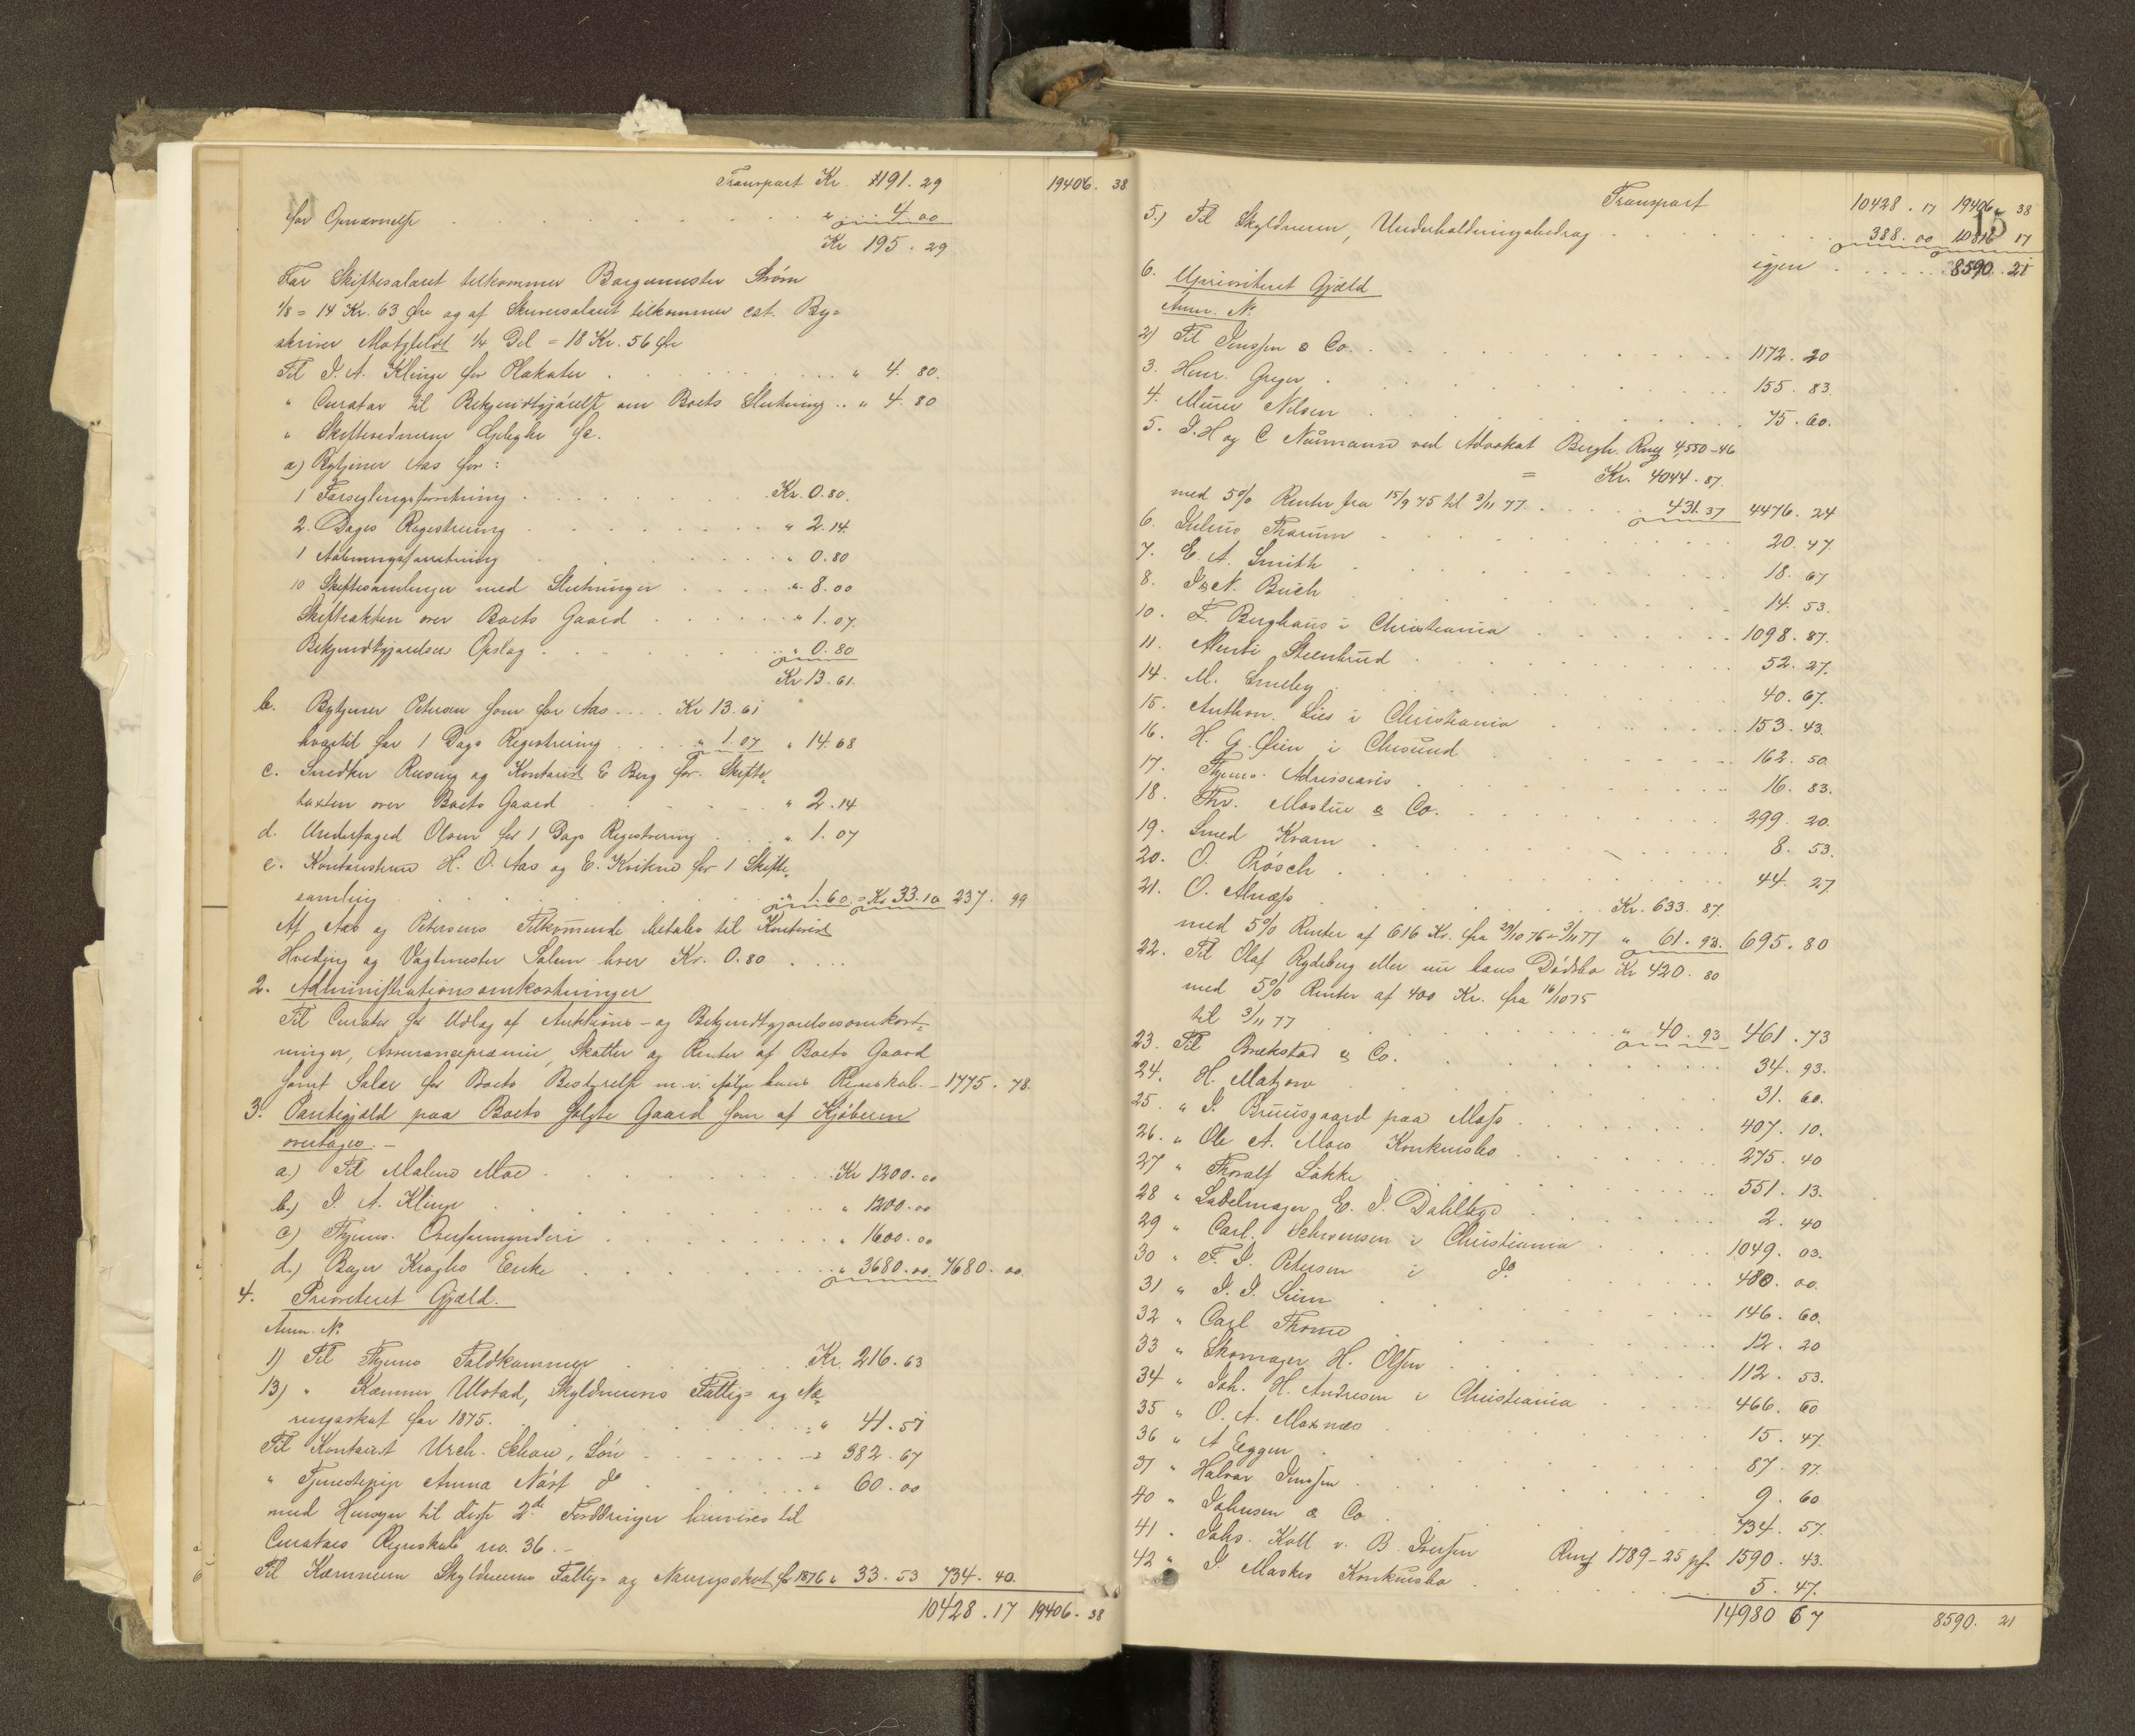 Transport Kr. 191. 29 19406. 38
for Opnævnelse " 4. 00
Kr 195. 29
For Skiftesalæret tilkommer Borgermester Strøm
1/8 = 14 Kr. 63 Øre og af Skriversalæret tilkommer cst. By=
skriver Motzfeldt 1/4 Del = 18 Kr. 56 Øre
Til J. A. Klinge for Plakater " 4. 80.
" Curator til Bekjendtgjørelse om Boets Slutning .. " 4. 80
" Skiftevidnerne
a) Bytjener Aas for:
1 Forseglingsforretning Kr. 0.80.
2 Dages Registrering " 2.14.
1 Aabningsforretning " 0.80
10 Skiftesamlinger med Slutninger " 8.00
Skiftetakten over Boets Gaard " 1.07.
Bekjendtgjørelses Opslag " 0.80
Kr 13. 61.
b. Bytjener Petersen som for Aas .... Kr 13. 61
hvortil for 1 Dags Registrering " 1.07 " 14.68
c. Snedker Rusing og Kontorist E Berg for Skifte,
taxten over Boets Gaard " 2.14
d. Underfoged Olsen for 1 Dags Registrering " 1.07
e. Kontoristerne H. O. Aas og E. Kvikne for 1 Skifte,
samling " 1.60 = Kr 33.10 237. 99
Af Aas og Petersens Tilkommende betales til Kontorist
Hveding og Vagtmester Solem hver Kr. 0.80 ....
2. Administrationsomkostninger
Til Curator for Udlæg af Auktions- og Bekjendtgjørelsesomkost=
ninger, Assurancepræmie, Skatter og Renter af Boets Gaard
samt Salær for Boets Bestyrelse m.v. ifølge hans Regnskab. - 1775. 78.
3. Pantegjæld paa Boets solgte Gaard som af Kjøberen
overtages. -
a.) Til Malene Moe Kr 1200. 00
b.) J. A. Klinge " 1200. 00
c) Thjems. Overformynderi " 1600. 00
d.) Bager Kroghs Enke " 3680. 00. 7680. 00.
4. Prioriteret Gjæld.
Anm. No
1) Til Thjems Toldkammer Kr. 216. 63
13) " Kæmner Ulstad, Skyldnerens Fattig= og Næ,
ringsskat for 1875. " 41. 57
Til Kontorist Urch. Schou, Løn " 382. 67
" Tjenestepige Anna Næss do " 60. 00
med Hensyn til disse 2de Fordringer henvises til
Curators Regnskab no. 36. -
Til Kæmneren Skyldnerens Fattig- og Næringsskat for 1876 " 33. 53 734. 40.
10428. 17 19406. 38
15
Transport 10428. 17 19406. 38
5.) Til Skyldneren, Underholdningsbidrag 388. 00 10816 17
igjen 8590. 21
6. Uprioriteret Gjæld
Anm. No
2) Til Jenssen & Co. 1172. 20
3. Henr. Greger 155. 83.
4. Murer Nilsen 75. 60.
5. J. H og C Naumann ved Advokat Bergh. Rmf 4,550-46
= Kr. 4044. 87.
med 5% Renter fra 15/9 75 til 3/11 77. 431. 37 4476. 24
6. Julius Thorum 20. 47.
7. E. A. Smith 18. 67
8. J & N. Buch 14. 53.
10. F. Berghaus i Christiania 1098. 87.
11. Menti Steenbrud 52. 27.
14. M. Smeby 40. 67.
15. Anthon. Lies i Christiania 153. 43.
16. H. G. Øien i Chrsund 162. 50.
17. Thjems. Adresseavis 16. 83.
18. Thr. Mostue & Co. 299. 20.
19. Smed Kvam 8. 53.
20. O. Rösch 44. 27.
21. O. Alnæss Kr. 633. 87.
med 5% Renter af 616 Kr. fra 29/10 76 - 3/11 77 " 61. 93. 695. 80
22. Til Olaf Rydeberg eller nu hans Dødsbo Kr 420. 80
med 5% Renter af 400 Kr. fra 16/10 75
til 3/11 77 " 40. 93 461. 73
23. Til Brækstad & Co. 34. 93.
24. H. Matzow 31. 60.
25. " J. Bruusgaard paa Moss 407. 10.
26. " Ole A. Moes Konkursbo 275. 40
27 " Thoralf Løkke 551. 13.
28 " Sadelmager E. J. Dahlbye 2. 40
29 " Carl. Schwensen i Christiania 1049. 03.
30 " F. J. Petersen i do 480. 00.
31 " J. J. Siem 146. 60.
32 " Carl Thome 12. 20
33 " Skomager H. Olsen 112. 53.
34 " Joh. H. Andresen i Christiania 466. 60
35 " O. A. Moxnæs 15. 47.
36 " A Eggen 87. 97.
37 " Halvor Jenssen 9. 60
40 " Johnsen & Co 734. 57.
41 " Johs. Koll v. B. Iversen Rmf 1789-25 pf. 1590. 43.
42 " J. Maskes Konkursbo 5. 47.
14980 67 8590. 21